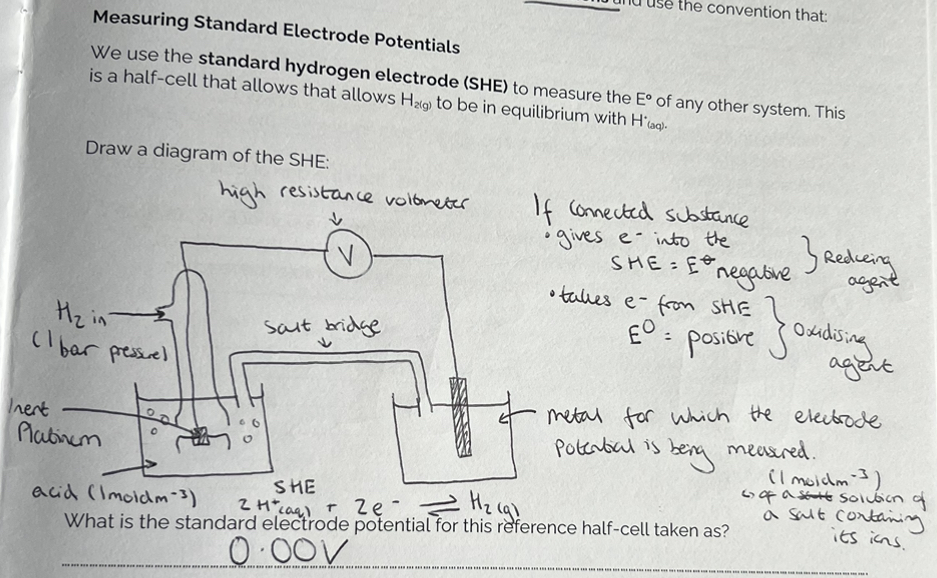 and use the convention that:
Measuring Standard Electrode Potentials
We use the standard hydrogen electrode (SHE) to measure the E° of any other system. This
is a half-cell that allows that allows H2(g) to be in equilibrium with H+(aq).
Draw a diagram of the SHE:
high resistance voltmeter
V
H2 in
(1 bar pressure)
salt bridge
Inert
Platinum
acid (1moldm-3)
SHE
2H+(aq) + 2e- ⇌ H2(g)
If connected substance
• gives e- into the
SHE = E⦵ negative
} Reducing
agent
• takes e- from SHE
E⁰ = positive
} Oxidising
agent
metal for which the electrode
potential is being measured.
(1 moldm-3)
↳ of a solution of
a salt containing
its ions.
What is the standard electrode potential for this reference half-cell taken as?
0.00V